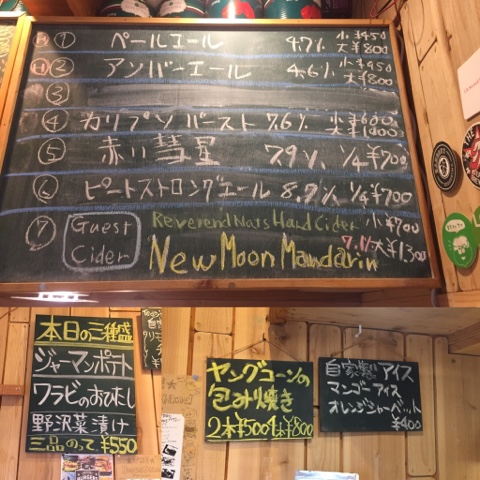 ① ペールエール 4.7% 小¥450 大¥800
② アンバーエール 4.6% 小¥450 大¥800
③
④ カリプソバースト 7.6% 小¥600 大¥1000
⑤ 赤い彗星 7.9% 1/4¥700
⑥ ピートストロングエール 8.9% 1/4¥700
⑦ Guest Cider Reverend Nats Hard Cider 小¥700
New Moon Mandarin 7.1% 大¥1300
本日の三種盛
ジャーマンポテト
ワラビのおひたし
野沢菜漬け
三品のって¥550
ヤングコーンの
包み焼き
2本¥500 4本¥800
自家製アイス
マンゴーアイス
オレンジシャーベット
¥400